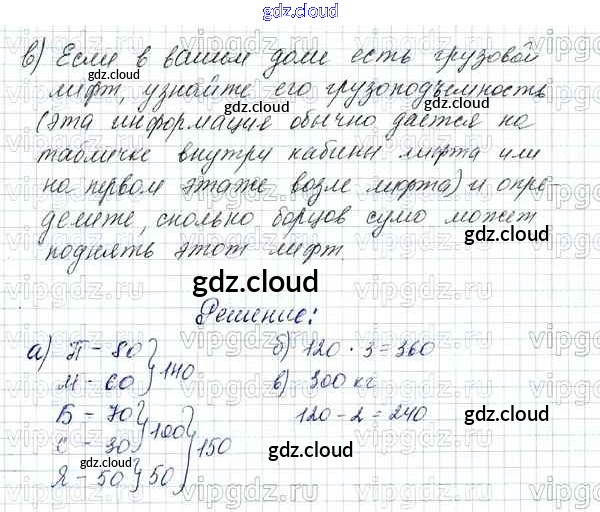 gdz.cloud
в) Если в вашем доме есть грузовой
лифт, узнайте его грузоподъемность
(эта информация обычно дается на
табличке внутри кабины лифта или
на первом этаже возле лифта) и опре-
делите, сколько борцов сумо может
поднять этот лифт
gdz.cloud
Решение:
а) П - 80 } 140
М - 60
Б - 70 } 100 } 150
С - 30
Я - 50 } 50
б) 120 · 3 = 360
в) 300 кг
120 - 2 = 240
gdz.cloud
gdz.cloud
gdz.cloud
gdz.cloud
gdz.cloud
gdz.cloud
gdz.cloud
gdz.cloud
vipgdz.ru